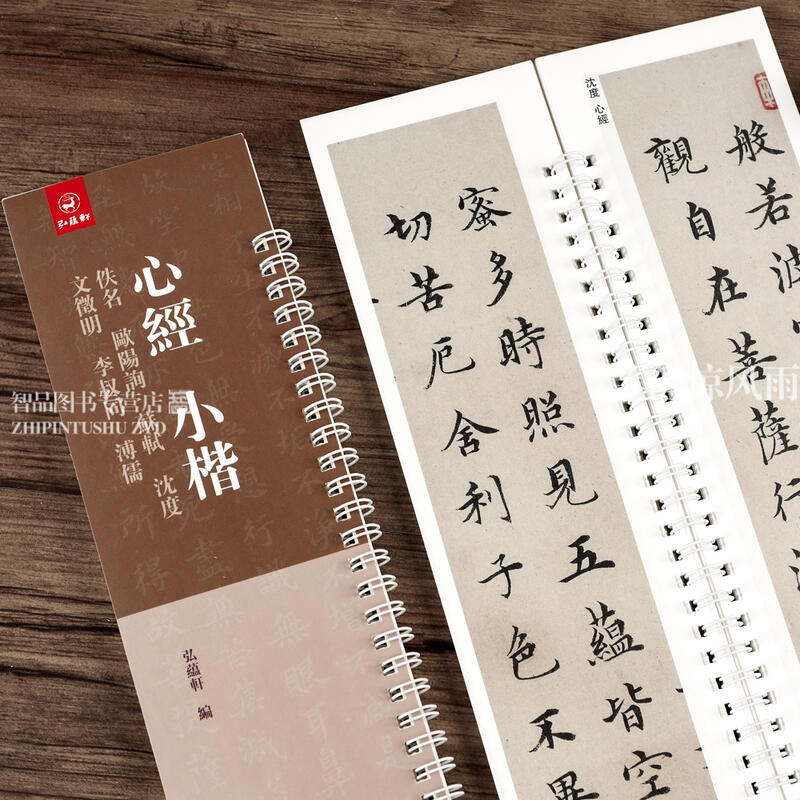 弘蘊軒
心經 小楷
佚名 歐陽詢 蘇軾 沈度
文徵明 李叔同 溥儒
弘蘊軒 編
智品图书专营店
ZHIPINTUSHU ZYD
沈度 心經
般若波
觀自在菩薩行深
蜜多時照見五蘊皆空
切苦厄舍利子色不異
风雨